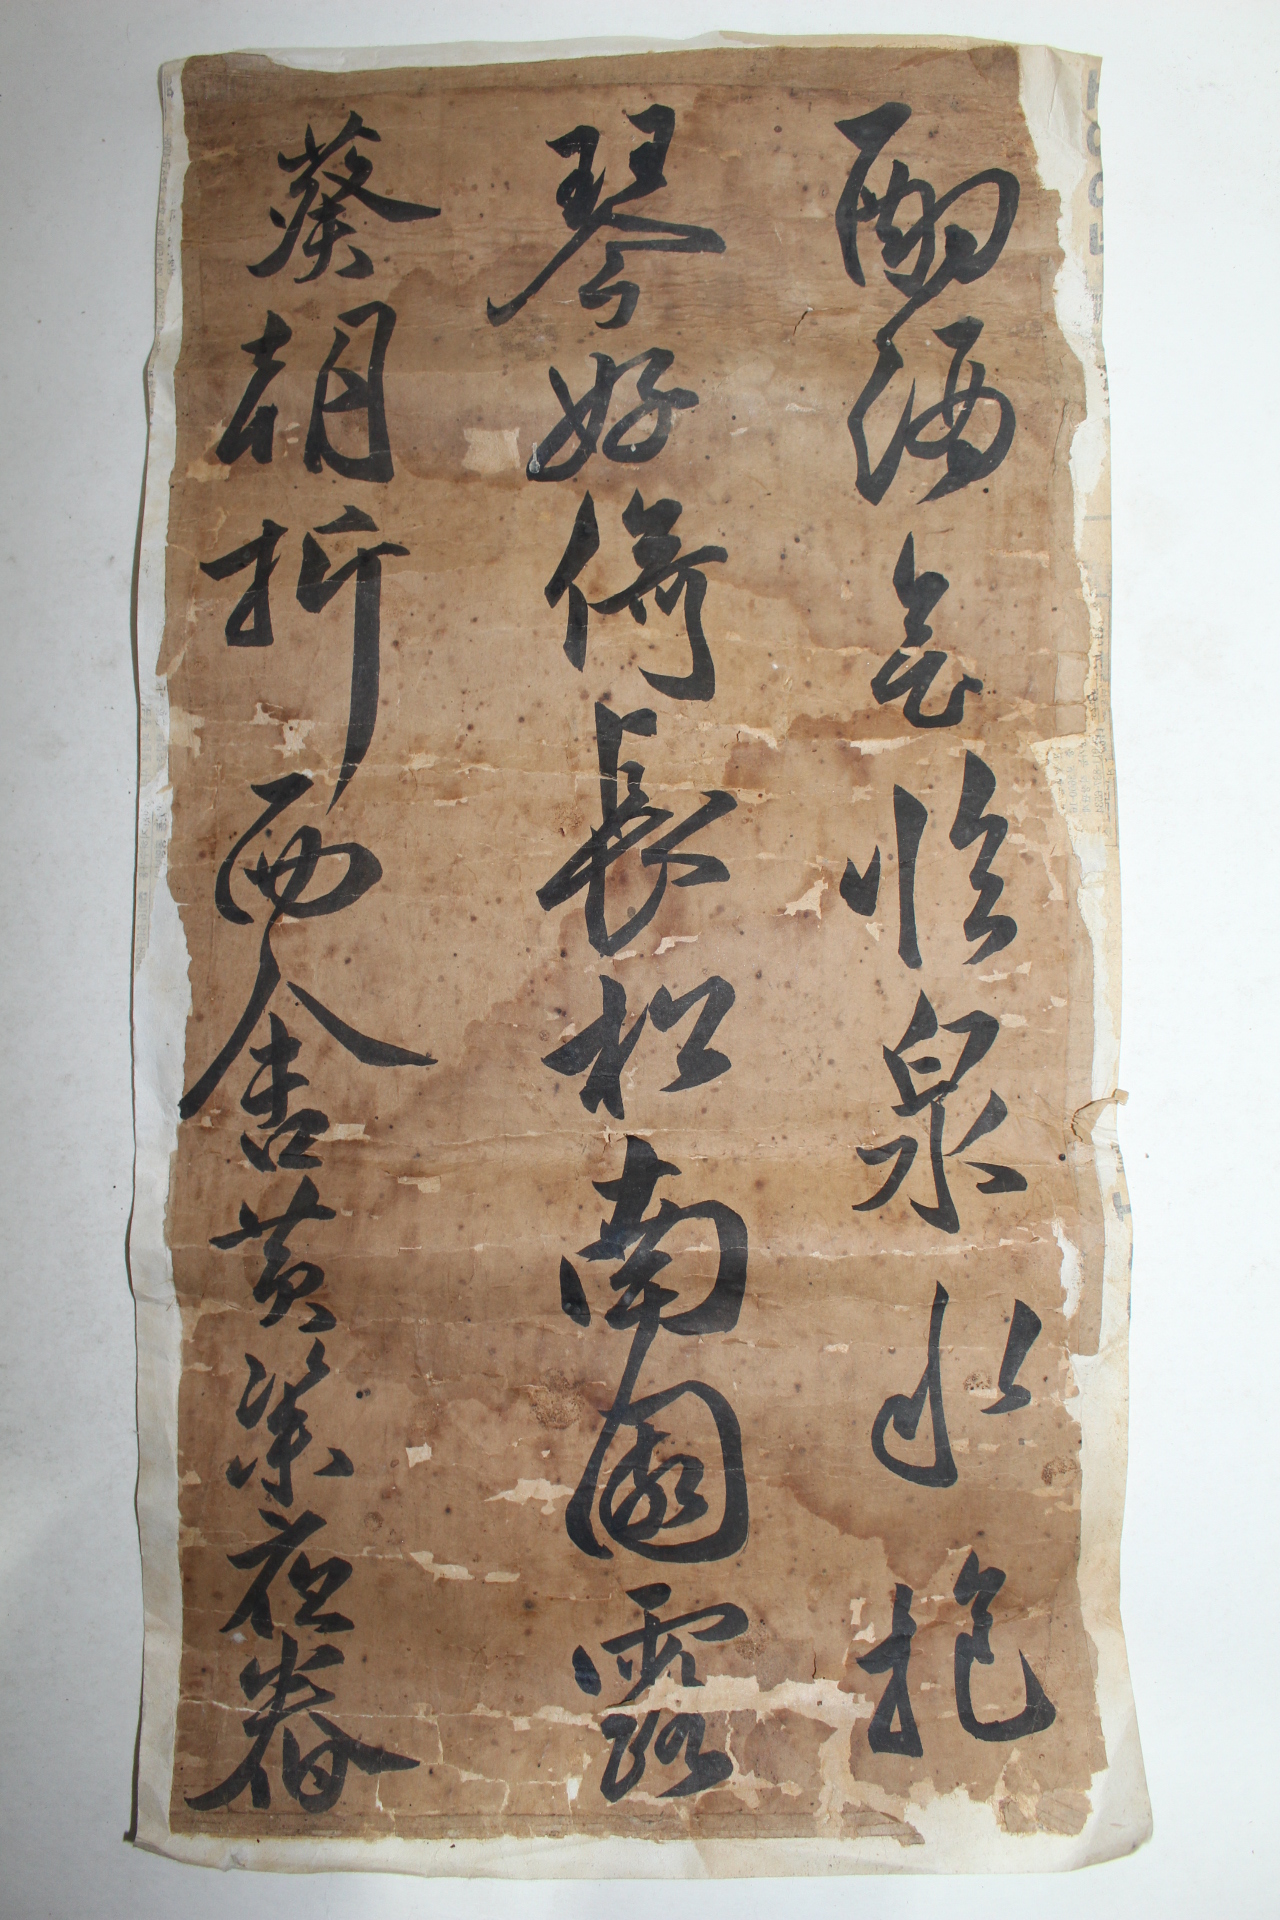 酌酒會臨泉水抱
琴好倚長松南園露
葵朝折西舍黃粱夜舂